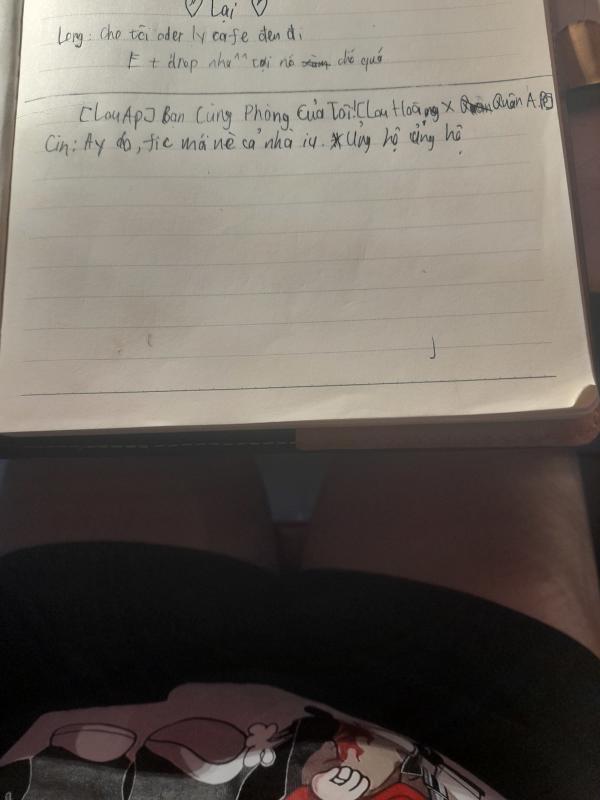 ♡ Lại ♡
Long: Cho tôi oder ly cafe đen đi
E + drop nha^^ tại nó dé quá
[LouAp] Bạn Cùng Phòng Của Tôi! [Lou Hoàng X Quân A.P]
Cin: Ay do, fic mới nè cả nhà iu. Ủng hộ ủng hộ